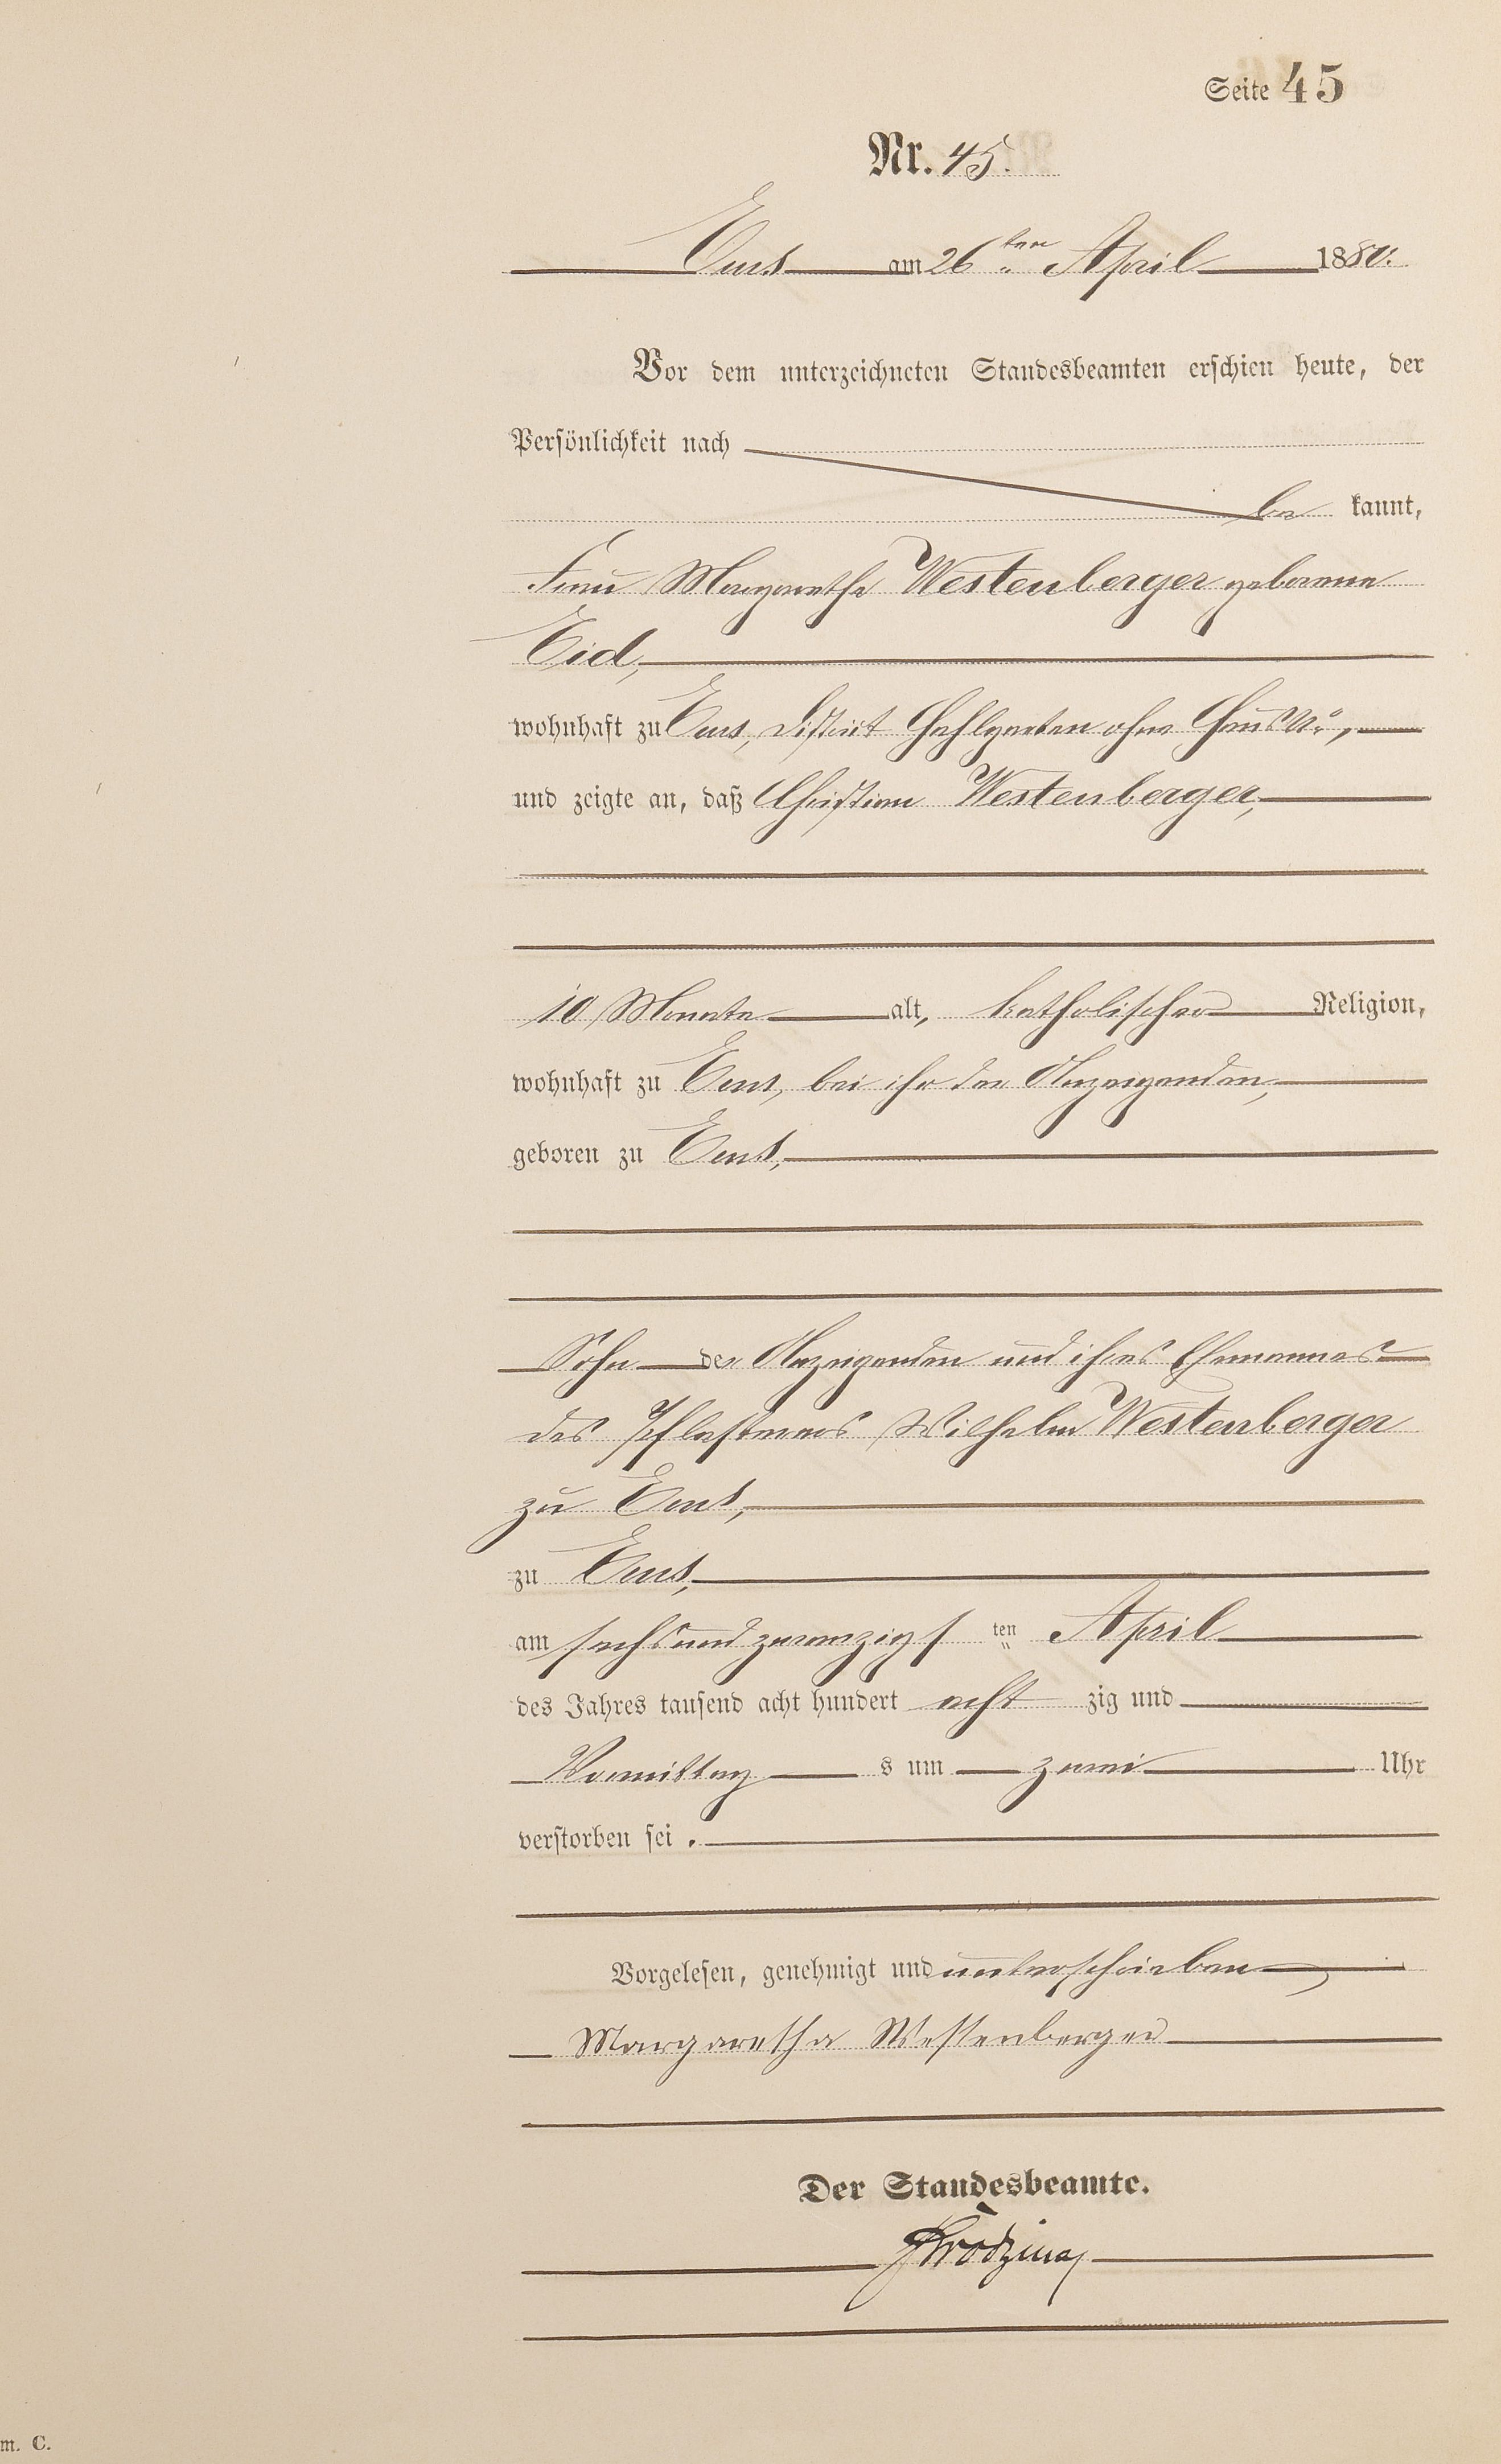 Seite 45
Nr. 45.
Ems am 26ten April 1880.
Vor dem unterzeichneten Standesbeamten erschien heute, der
Persönlichkeit nach
be kannt,
Frau Margaretha Westenberger geborene
Eid,
wohnhaft zu Ems, District ohne Haus No,
und zeigte an, daß Christian Westenberger,
10 Monate alt, katholischer Religion,
wohnhaft zu Ems, bei ihr der Anzeigenden,
geboren zu Ems,
Sohn der Anzeigenden und ihres Ehemannes
des Pflasterers Wilhelm Westenberger
zu Ems,
zu Ems,
am sechsundzwanzigs ten April
des Jahres tausend acht hundert acht zig und
Vormittag s um zwei Uhr
verstorben sei .
Vorgelesen, genehmigt und unterschrieben
Margaretha Westenberger
Der Standesbeamte.
m. C.